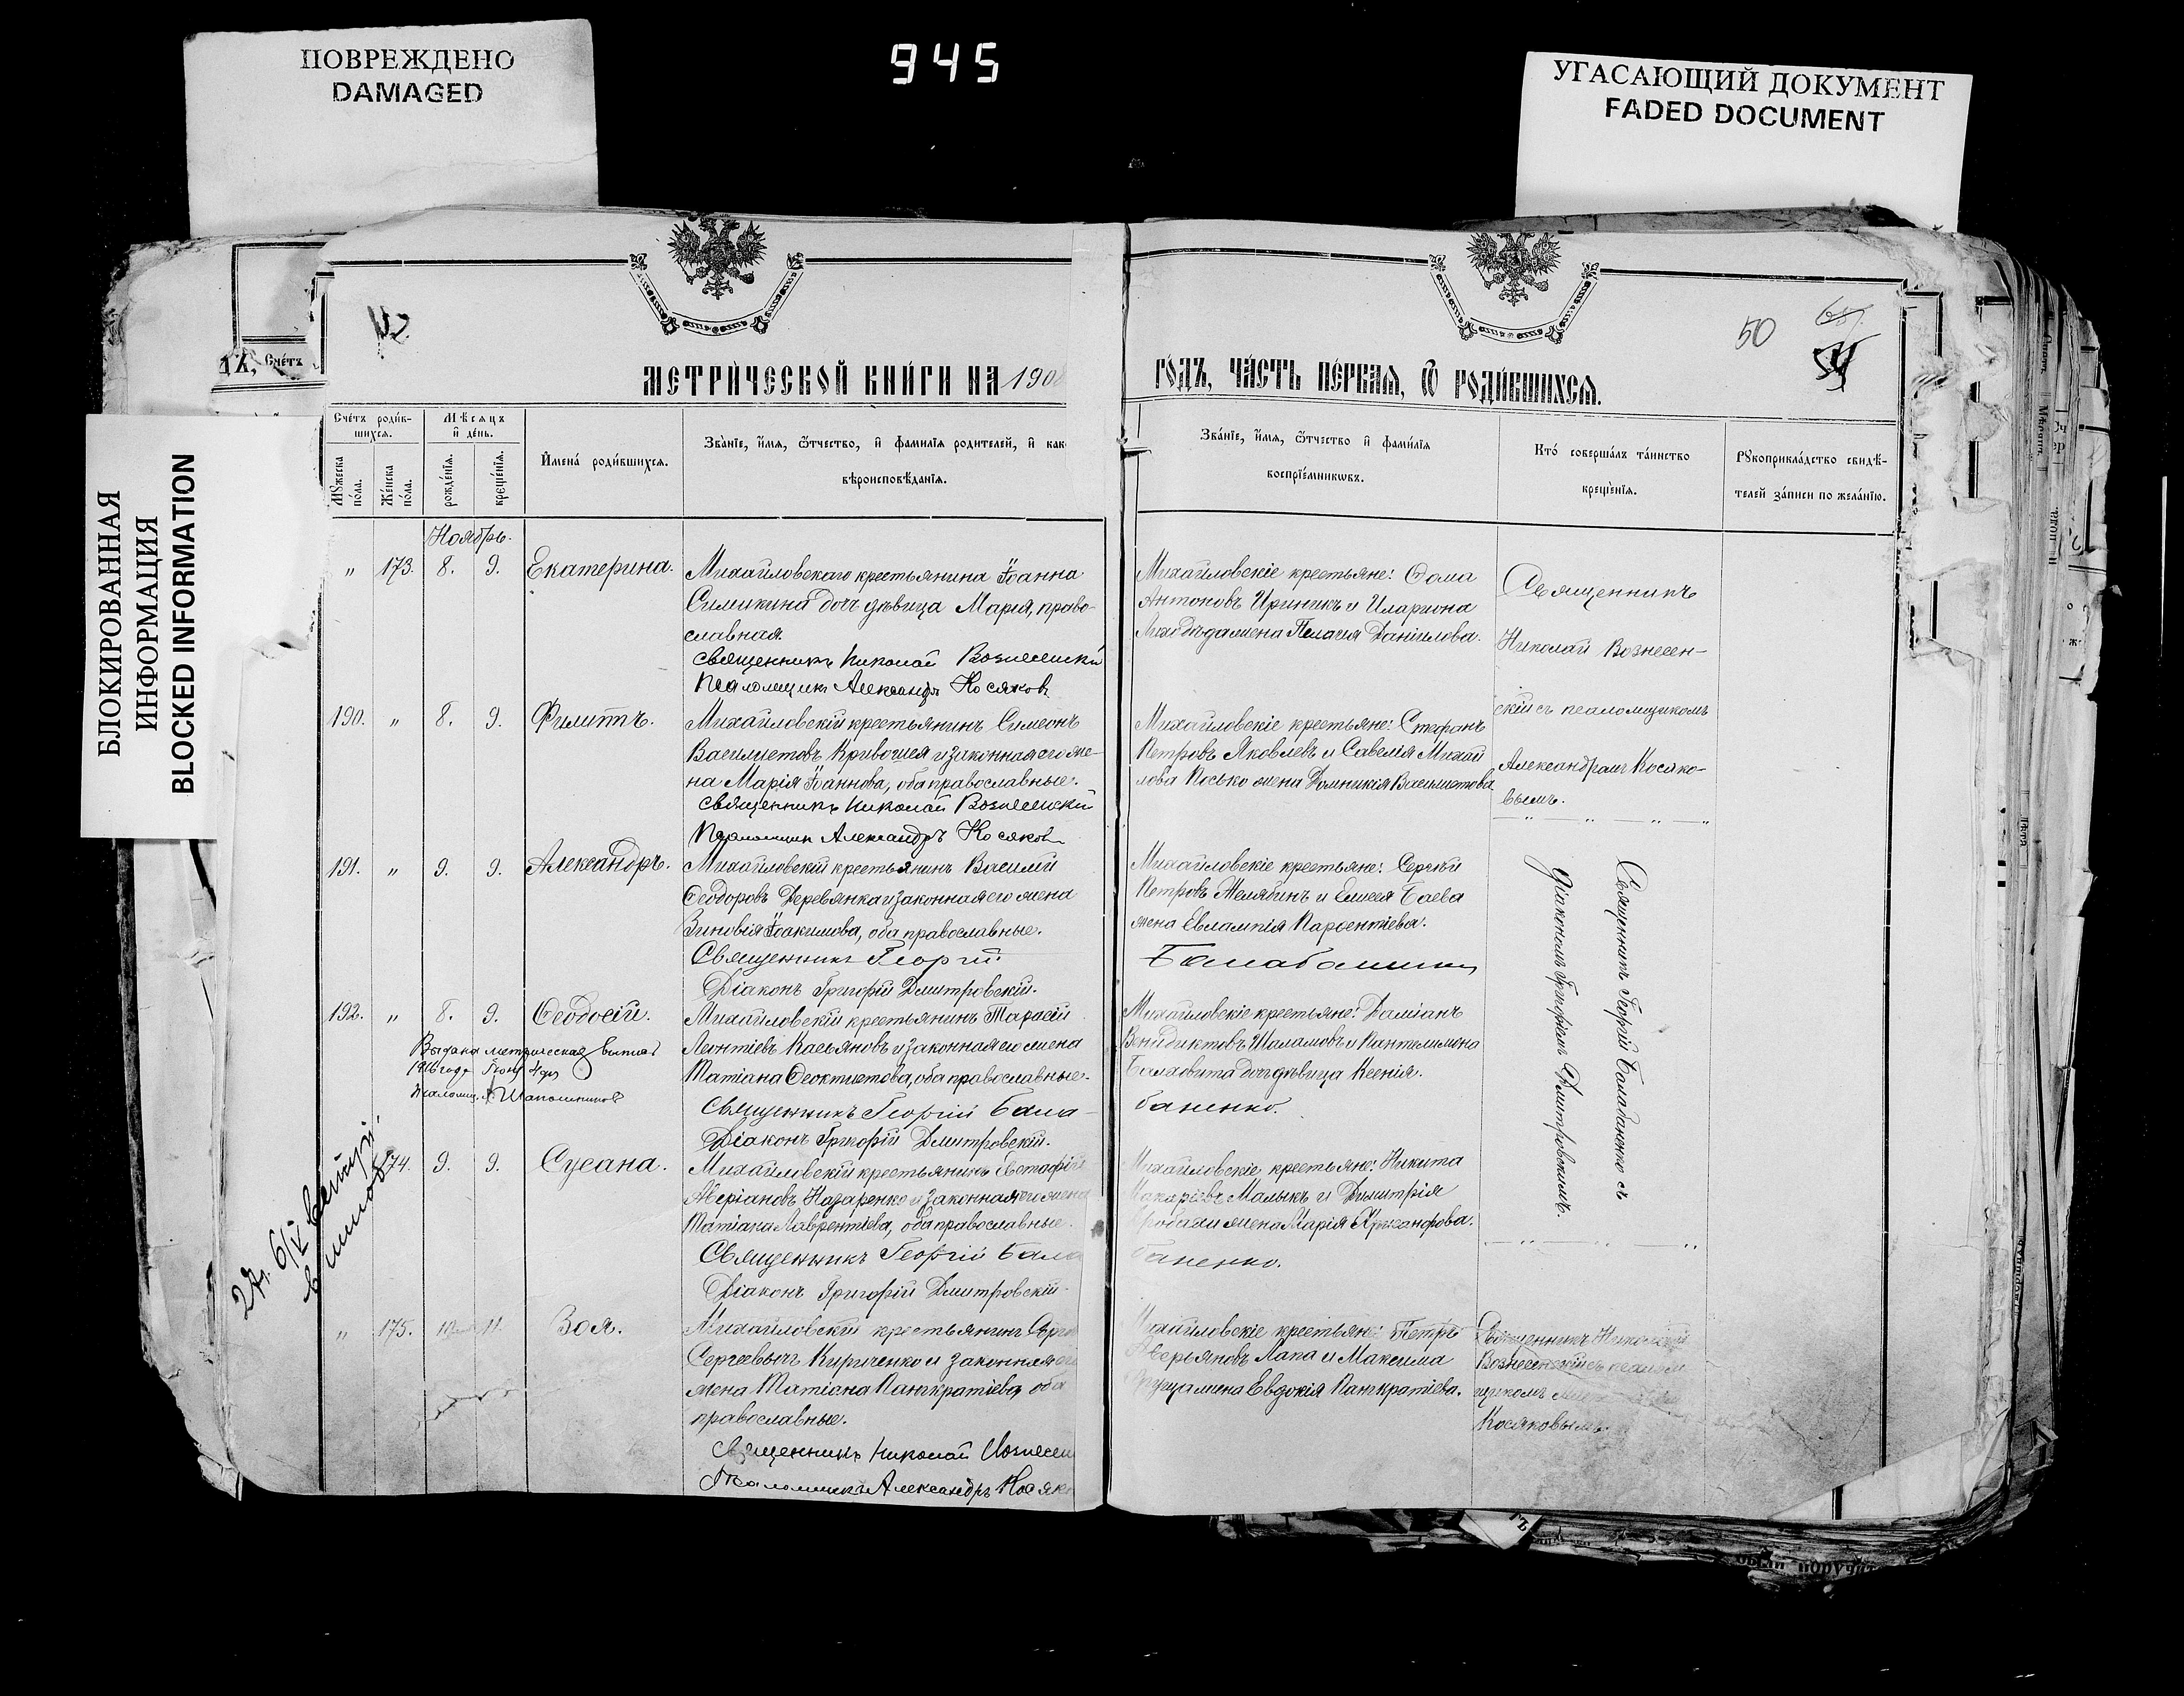 ПОВРЕЖДЕНО
DAMAGED
945
УГАСАЮЩИЙ ДОКУМЕНТ
FADED DOCUMENT
БЛОКИРОВАННАЯ
ИНФОРМАЦИЯ
BLOCKED INFORMATION
50
МЕТРИ́ЧЕСКОЙ КНИ́ГИ НА 1908
ГО́ДЪ, ЧА́СТЬ ПЕ́РВАЯ, Ѿ РОДИ́ВШИХСЯ.
Сче́тъ роди́в-
шихся.
Мꙋжеска по́ла.
Же́нска по́ла.
Мѣсяцъ
и҆ де́нь.
рожде́нїя.
креще́нїя.
И҆мена̀ роди́вшихся.
Зва́нїе, и҆́мя, ѻ҆́тчество, и҆ фами́лїя родителей, и҆ как
вѣроисповѣ́данїя.
Зва́нїе, и҆́мя, ѻ҆́тчество и҆ фами́лїя
воспрїе́мникѡвъ.
Кто̀ соверша́лъ та́инство
креще́нїя.
Рꙋкоприкла́дство свидѣ́-
телей за́писи по жела́нїю.
Ноябрь.
" 173. 8. 9. Екатерина.
Михайловскаго крестьянина Іоанна
Симикина дочь дѣвица Марія, право-
славная.
Священникъ Николай Вознесенскій
Псаломщикъ Александръ Косяковъ
Михайловскіе крестьяне: Ѳома
Антоновъ и Иларiона
жена Пелагія Даніилова.
Священникъ
Николай Вознесен-
скій съ псаломщикомъ
Александромъ Косяко-
вымъ.
190. " 8. 9. Филиппъ.
Михайловскій крестьянинъ Симеонъ
Васильетовъ Кривошея и законная его же-
на Марія Іоаннова, оба православные.
Священникъ Николай Вознесенскій
Псаломщикъ Александръ Косяковъ
Михайловскіе крестьяне: Стефанъ
Петровъ Яковлевъ и Савелія Михай
лова Носько жена Домникія
191. " 9. 9. Александръ.
Михайловскій крестьянинъ Василій
Ѳеодоровъ Деревянка и законная его жена
Зиновія Іоакимова, оба православные.
Священникъ Георгій
Діаконъ Григорій Дмитровскій.
Михайловскіе крестьяне: Сергѣй
Петровъ Желябинъ и Елисея Баева
жена Евлампія Парѳентіева.
Священникъ Георгій Балабаненко съ
діакономъ Григоріемъ Дмитровскимъ.
192. " 8. 9. Ѳеодосій.
Выдана метрическая выпись
1916 года
Михайловскій крестьянинъ Тарасій
Леонтіевъ Касьяновъ и законная его жена
Татіана Ѳеоктистова, оба православные.
Священникъ Георгій Бала-
Діаконъ Григорій Дмитровскій.
Михайловскіе крестьяне: Даміанъ
Венидиктовъ Шаламовъ и Пантелимона
дочь дѣвица Ксенія.
баненко.
174. 9. 9. Сусана.
Михайловскій крестьянинъ Евстафій
Аверіановъ Назаренко и законная его жена
Татіана Лаврентіева, оба православные.
Священникъ Георгій Бала
Діаконъ Григорій Дмитровскій.
Михайловскіе крестьяне: Никита
Макаріевъ Малыкъ и Димитрія
жена Марія Хрисанфова.
баненко.
" 175. 11. Зоя.
Михайловскій крестьянинъ
Сергеевичъ Кириченко и законная его
жена Татіана Панкратіева, оба
православные.
Священникъ Николай Вознесен
Псаломщикъ Александръ Косяко
Михайловскіе крестьяне: Петръ
Аверьяновъ Лапа и Максима
жена Евдокія Панкратіева.
Священникъ Николай
Вознесенскій съ псалом
щикомъ
Косяковымъ.